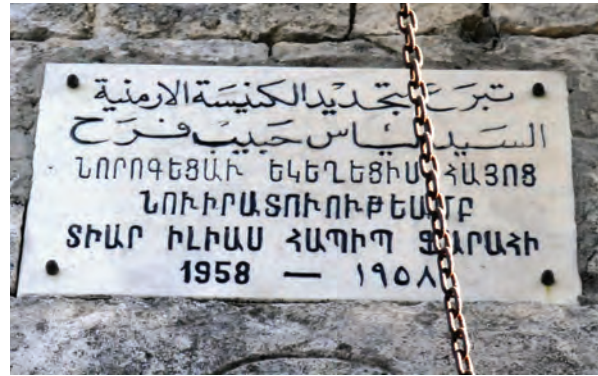 تبرع بتجديد الكنيسة الارمنية
السيد الياس حبيب فرح
ՆՈՐՈԳԵՑԱՒ ԵԿԵՂԵՑԻՍ ՀԱՅՈՑ
ՆՈՒԻՐԱՏՈՒՈՒԹԵԱՄԲ
ՏԻԱՐ ԻԼԻԱՍ ՀԱՊԻՊ ՖԱՐԱՀԻ
1958 — ١٩٥٨